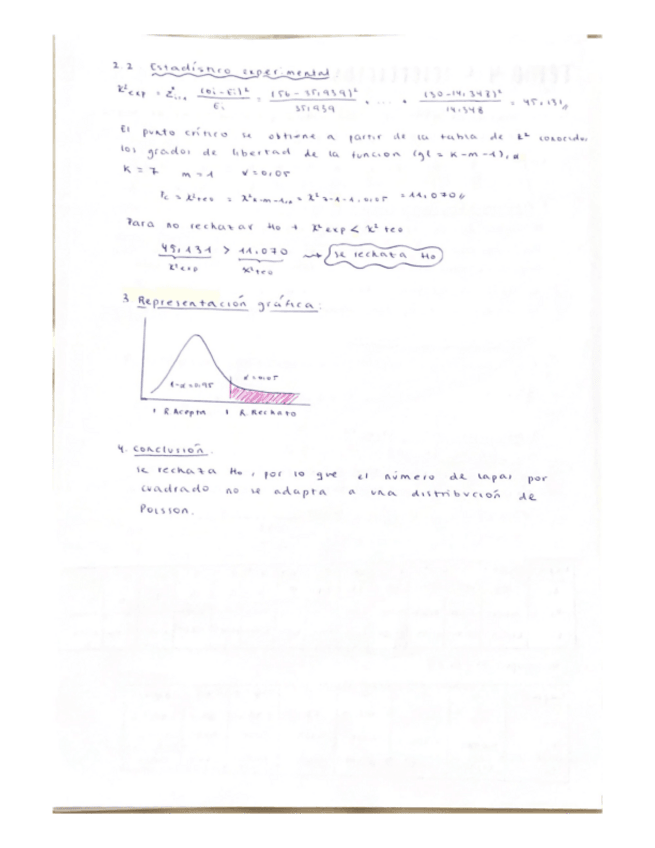 2.2 Estadístico experimental
χ²exp = Σⁿi=1 (Oi - Ei)² / Ei = (56 - 35,939)² / 35,939 + ... + (30 - 14,348)² / 14,348 = 45,131
El punto crítico se obtiene a partir de la tabla de χ² conocidos
los grados de libertad de la función (gl = K - m - 1),
K = 7 m = 1 α = 0,05
Pc = χ²teo = χ² K-m-1,α = χ² 7-1-1, 0,05 = 11,0706
Para no rechazar Ho + χ²exp < χ² teo
45,131 > 11,070 → se rechaza Ho
χ²exp χ²teo
3 Representación gráfica:
1-α = 0,95 α = 0,05
R. Acepta R. Rechazo
4. Conclusión.
se rechaza Ho, por lo que el número de lapas por
cuadrado no se adapta a una distribución de
Poisson.